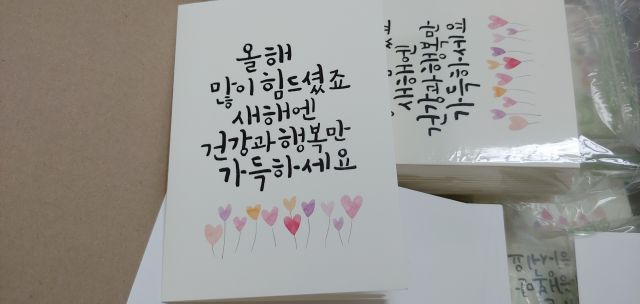 올해
많이 힘드셨죠
새해엔
건강과 행복만
가득하세요
새해엔
건강과 행복만
가득하세요